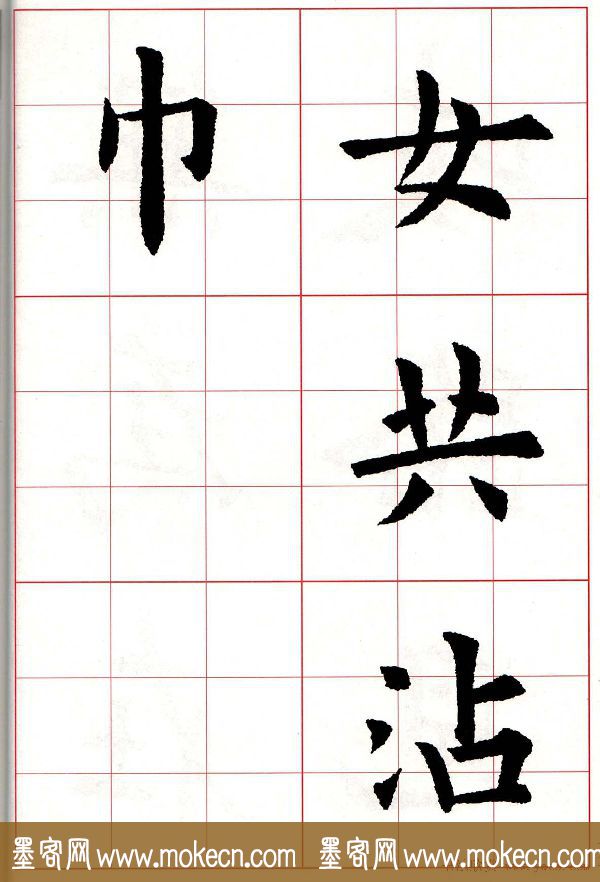 女共沾
巾
墨客网 www.mokecn.com 墨客网 www.mokecn.com